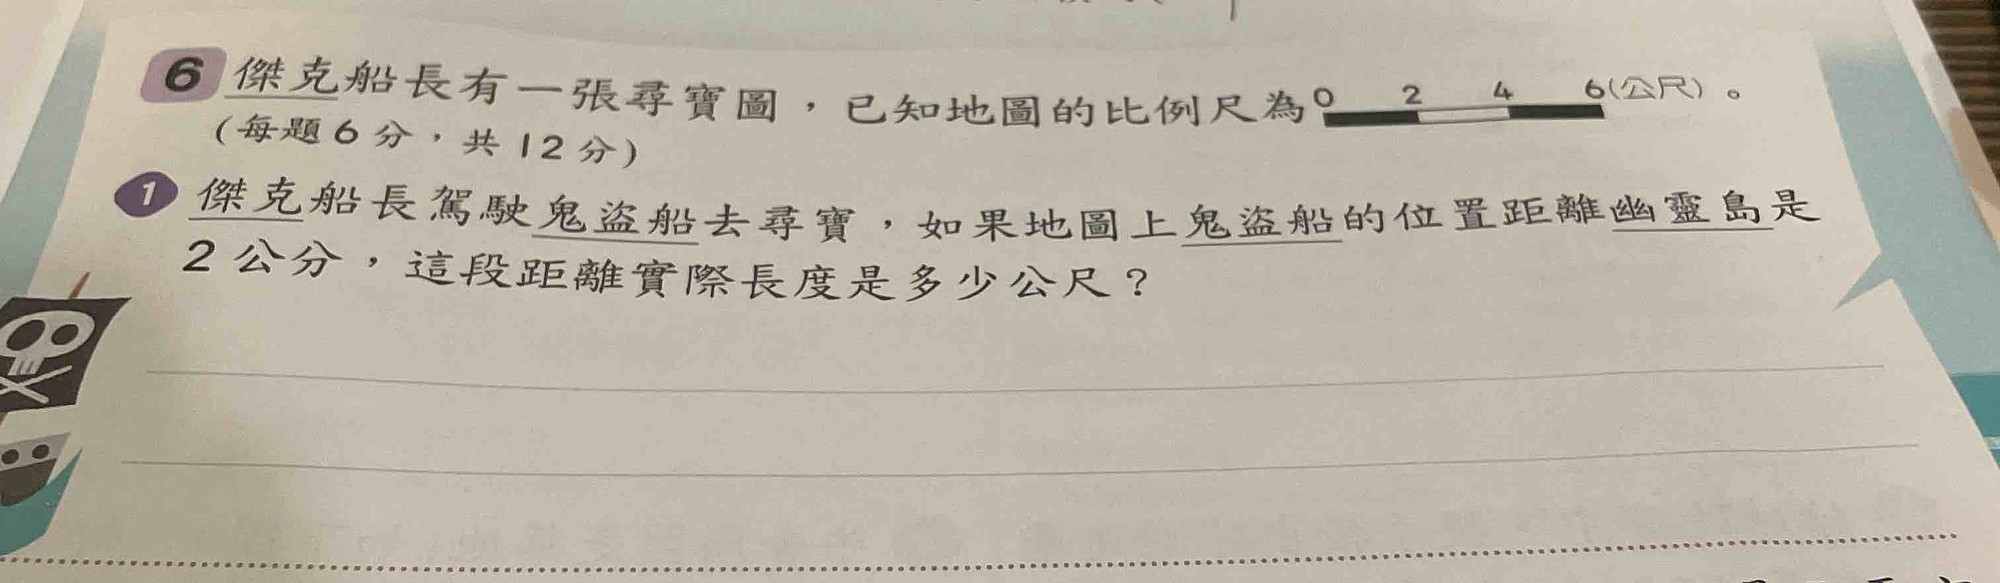 6 傑克船長有一張尋寶圖，已知地圖的比例尺為 0 2 4 6(公尺)。
(每題6分，共12分)
1 傑克船長駕駛鬼盜船去尋寶，如果地圖上鬼盜船的位置距離幽靈島是
2公分，這段距離實際長度是多少公尺？